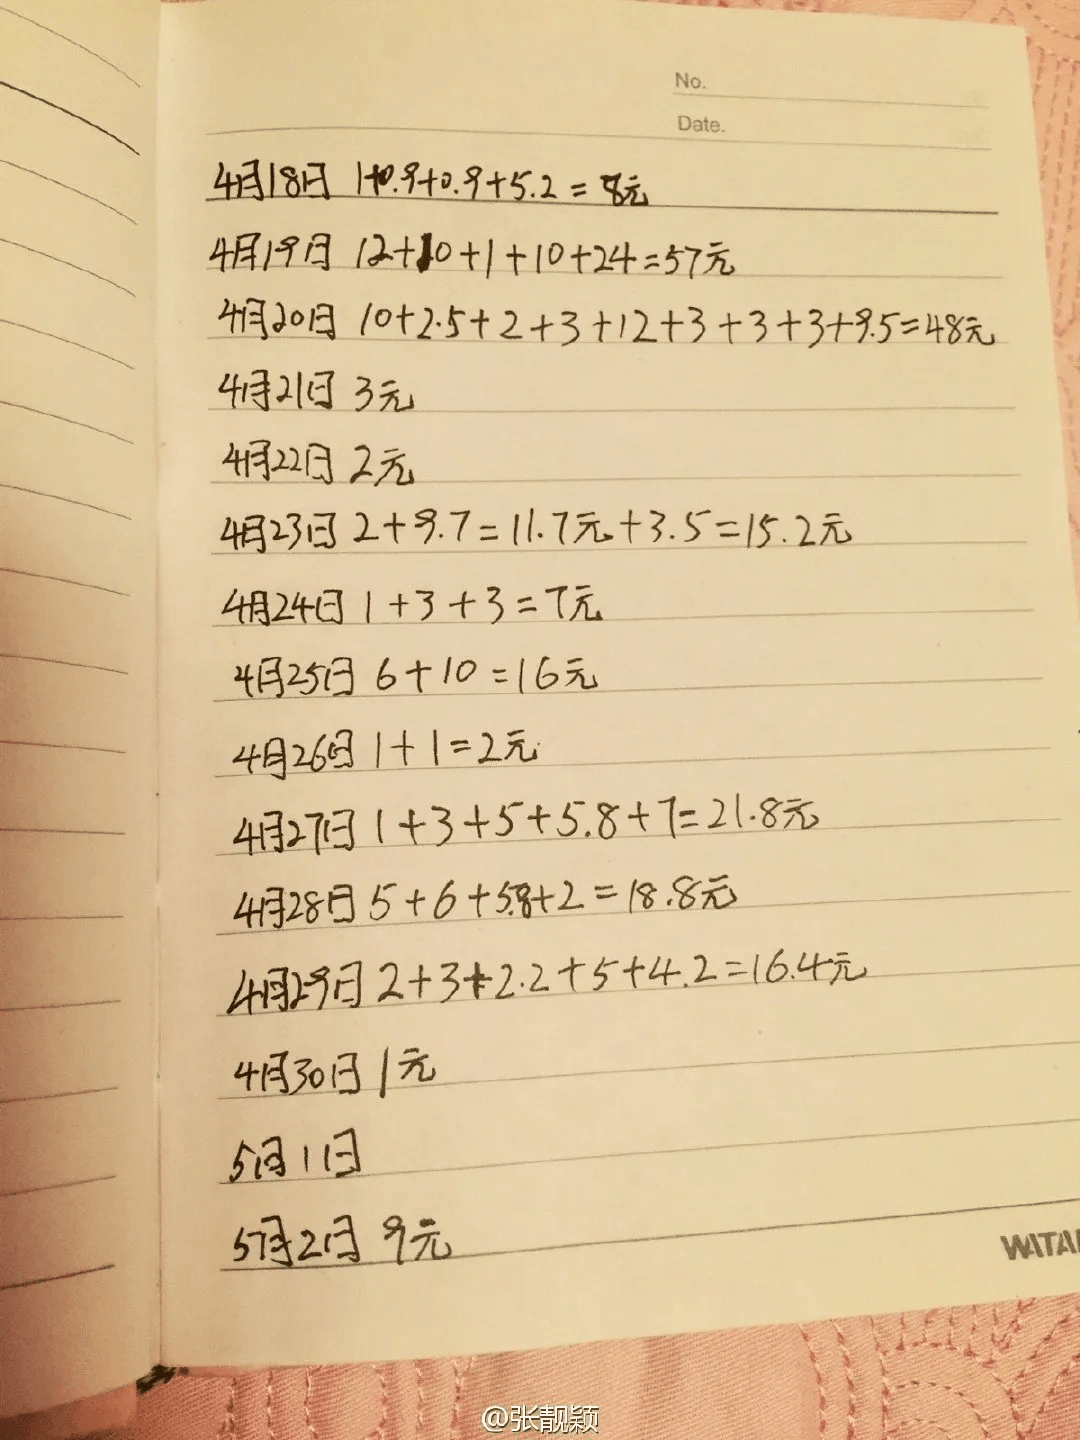 No.
Date.
4月18日 1+0.9+0.9+5.2=8元
4月19日 12+10+1+10+24=57元
4月20日 10+2.5+2+3+12+3+3+3+9.5=48元
4月21日 3元
4月22日 2元
4月23日 2+9.7=11.7元+3.5=15.2元
4月24日 1+3+3=7元
4月25日 6+10=16元
4月26日 1+1=2元
4月27日 1+3+5+5.8+7=21.8元
4月28日 5+6+5.8+2=18.8元
4月29日 2+3+2.2+5+4.2=16.4元
4月30日 1元
5月1日
5月2日 9元
@张靓颖